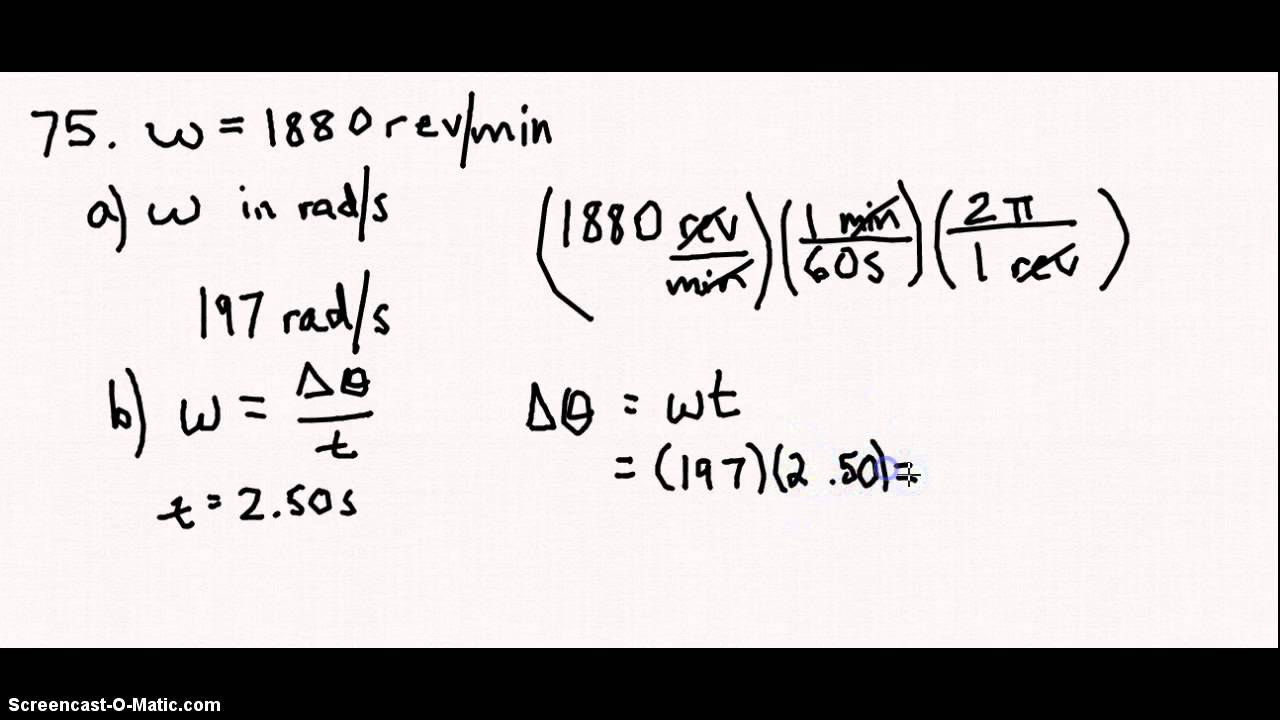 75. ω = 1880 rev/min
a) ω in rad/s
(1880 rev/min)(1 min/60s)(2π/1 rev)
197 rad/s
b) ω = Δθ/t
Δθ = ωt
= (197)(2.50)=
t = 2.50s
Screencast-O-Matic.com